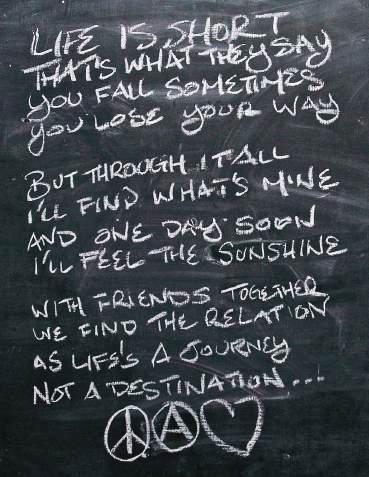 LIFE IS SHORT
THAT'S WHAT THEY SAY
YOU FALL SOMETIMES
YOU LOSE YOUR WAY
BUT THROUGH IT ALL
I'LL FIND WHAT'S MINE
AND ONE DAY SOON
I'LL FEEL THE SUNSHINE
WITH FRIENDS TOGETHER
WE FIND THE RELATION
AS LIFE'S A JOURNEY
NOT A DESTINATION...